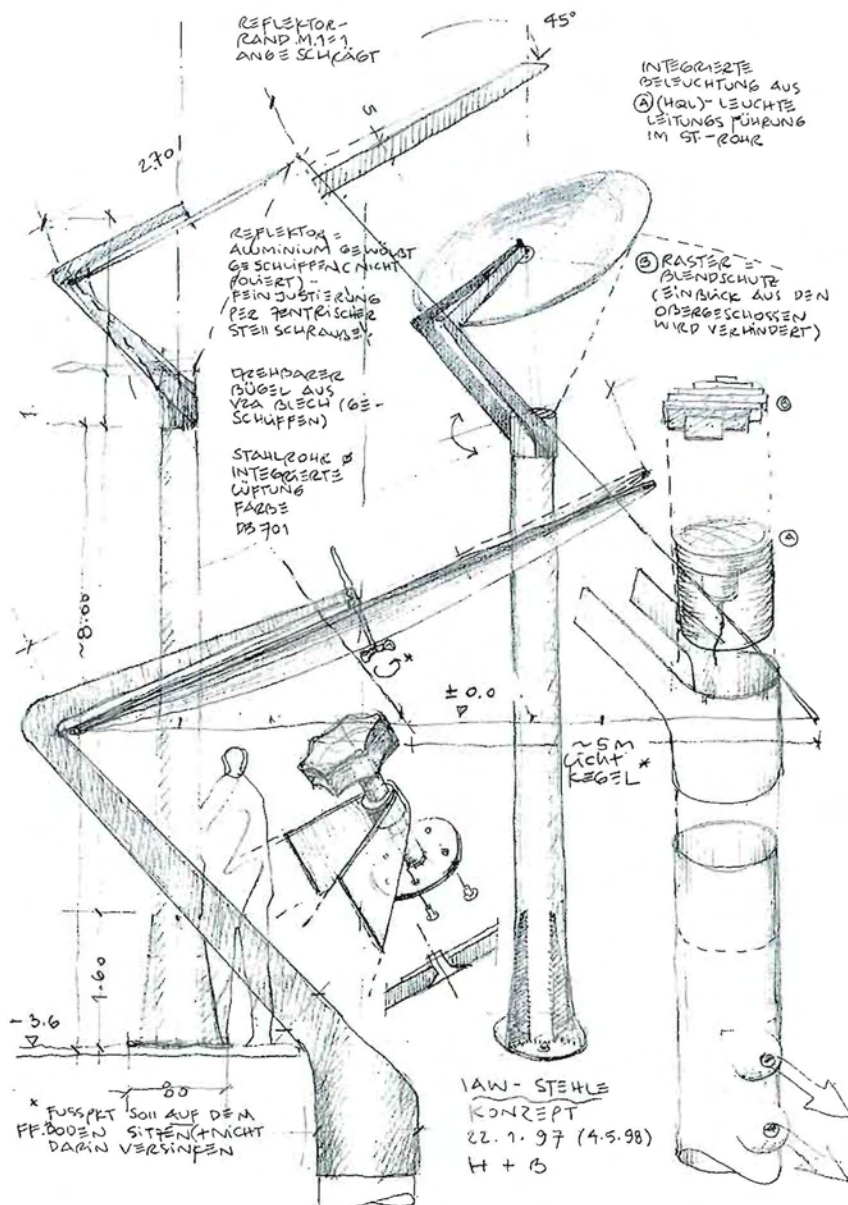 REFLEKTOR-
RAND M. 1=1
ANGESCHRÄGT
45°
INTEGRIERTE
BELEUCHTUNG AUS
Ⓐ (HQL)-LEUCHTE
LEITUNGSFÜHRUNG
IM ST.-ROHR
5
2.70
REFLEKTOR =
ALUMINIUM GEWÖLBT
GESCHLIFFEN (NICHT
POLIERT) -
FEINJUSTIERUNG
PER ZENTRISCHER
STELLSCHRAUBE.
Ⓑ RASTER =
BLENDSCHUTZ
(EINBLICK AUS DEN
OBERGESCHOSSEN
WIRD VERHINDERT)
DREHBARER
BÜGEL AUS
V2A BLECH (GE-
SCHLIFFEN)
1.
Ⓑ
STAHLROHR Ø
INTEGRIERTE
LÜFTUNG
FARBE
DB 701
Ⓐ
~8.00
*
± 0.0
~5M
LICHT *
KEGEL
1.60
- 3.6
80
* FUSSPKT SOLL AUF DEM
FF.BODEN SITZEN (+NICHT
DARIN VERSINKEN
IAW - STEHLE
KONZEPT
22.1.97 (4.5.98)
H + B